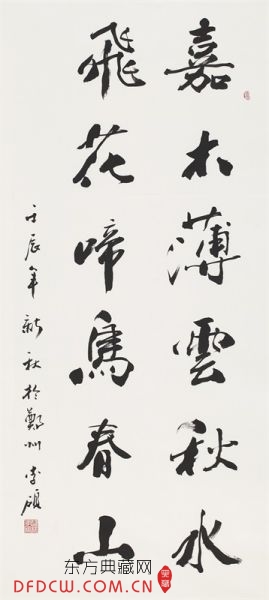 嘉木薄雲秋水
飛花啼鳥春山
壬辰年新秋於鄭州李碩
东方典藏网
DFDCW.COM.CN